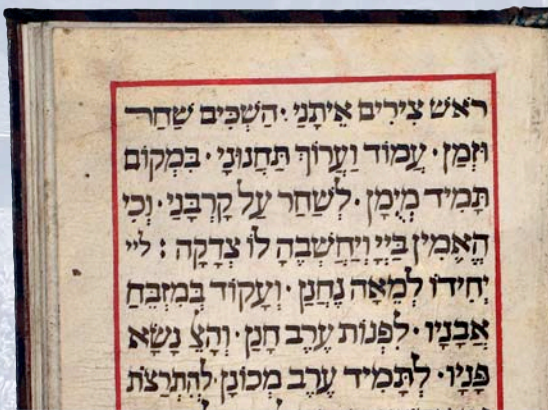 ראש צירים איתני · השכים שחר
וזמן · עמוד וערוך תחנוני · במקום
תמיד מימן · לשחר על קרבני · וכי
האמין בייי ויחשבה לו צדקה : ליי
יחידו למאה נחנן · ועקוד במזבח
אבניו · לפנות ערב חנן · והצ נשא
פניו · לתמיד ערב מכונן · להתרצות